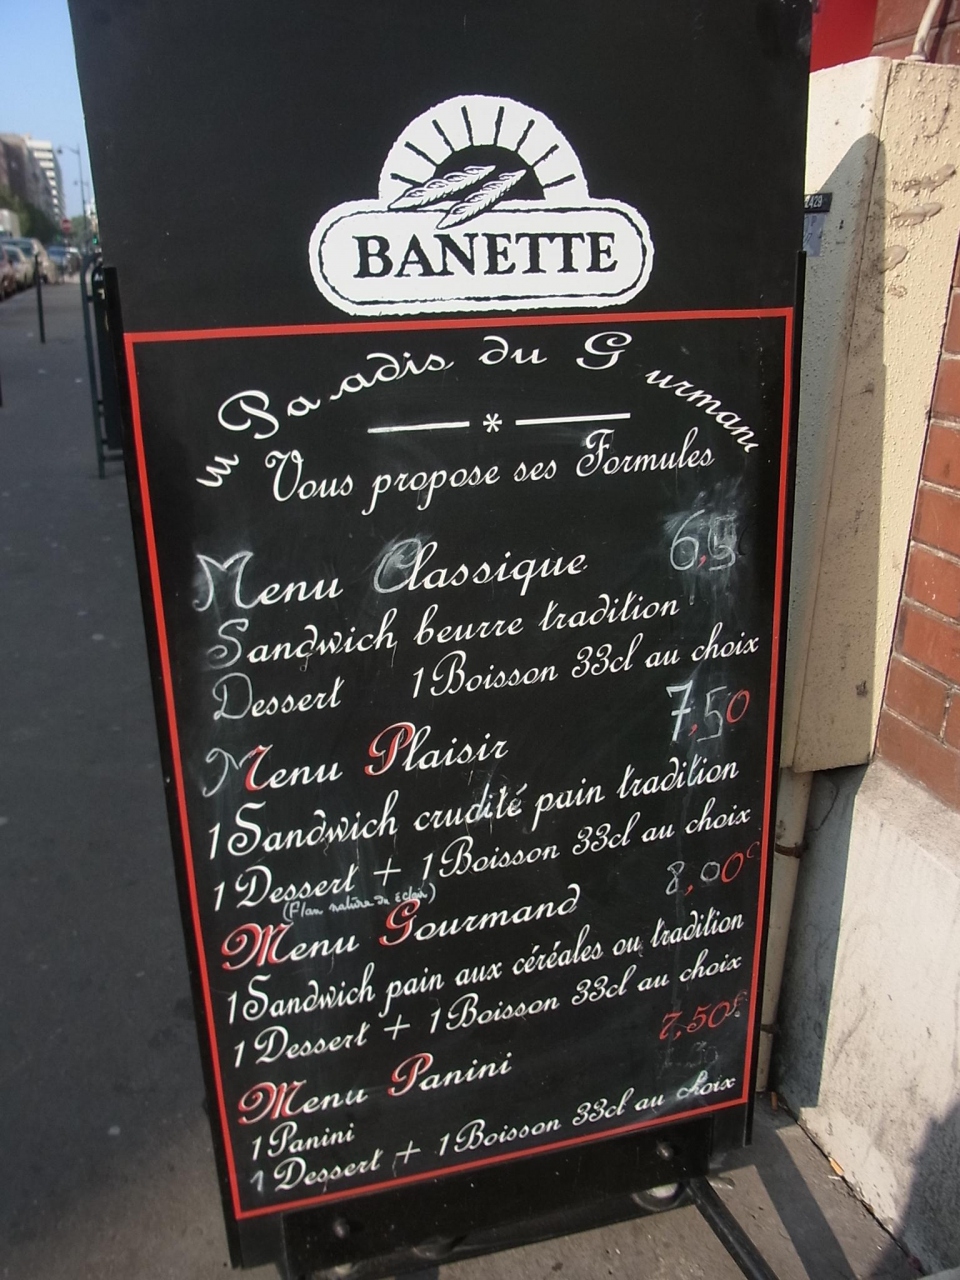 BANETTE
Paradis du Gourmand
Vous propose ses Formules
Menu Classique 6,5
Sandwich beurre tradition
Dessert 1 Boisson 33cl au choix
Menu Plaisir 7,50
1 Sandwich crudité pain tradition
1 Dessert + 1 Boisson 33cl au choix
(Flan nature ou éclair)
Menu Gourmand 8,00€
1 Sandwich pain aux céréales ou tradition
1 Dessert + 1 Boisson 33cl au choix
Menu Panini 7,50€
1 Panini
1 Dessert + 1 Boisson 33cl au choix